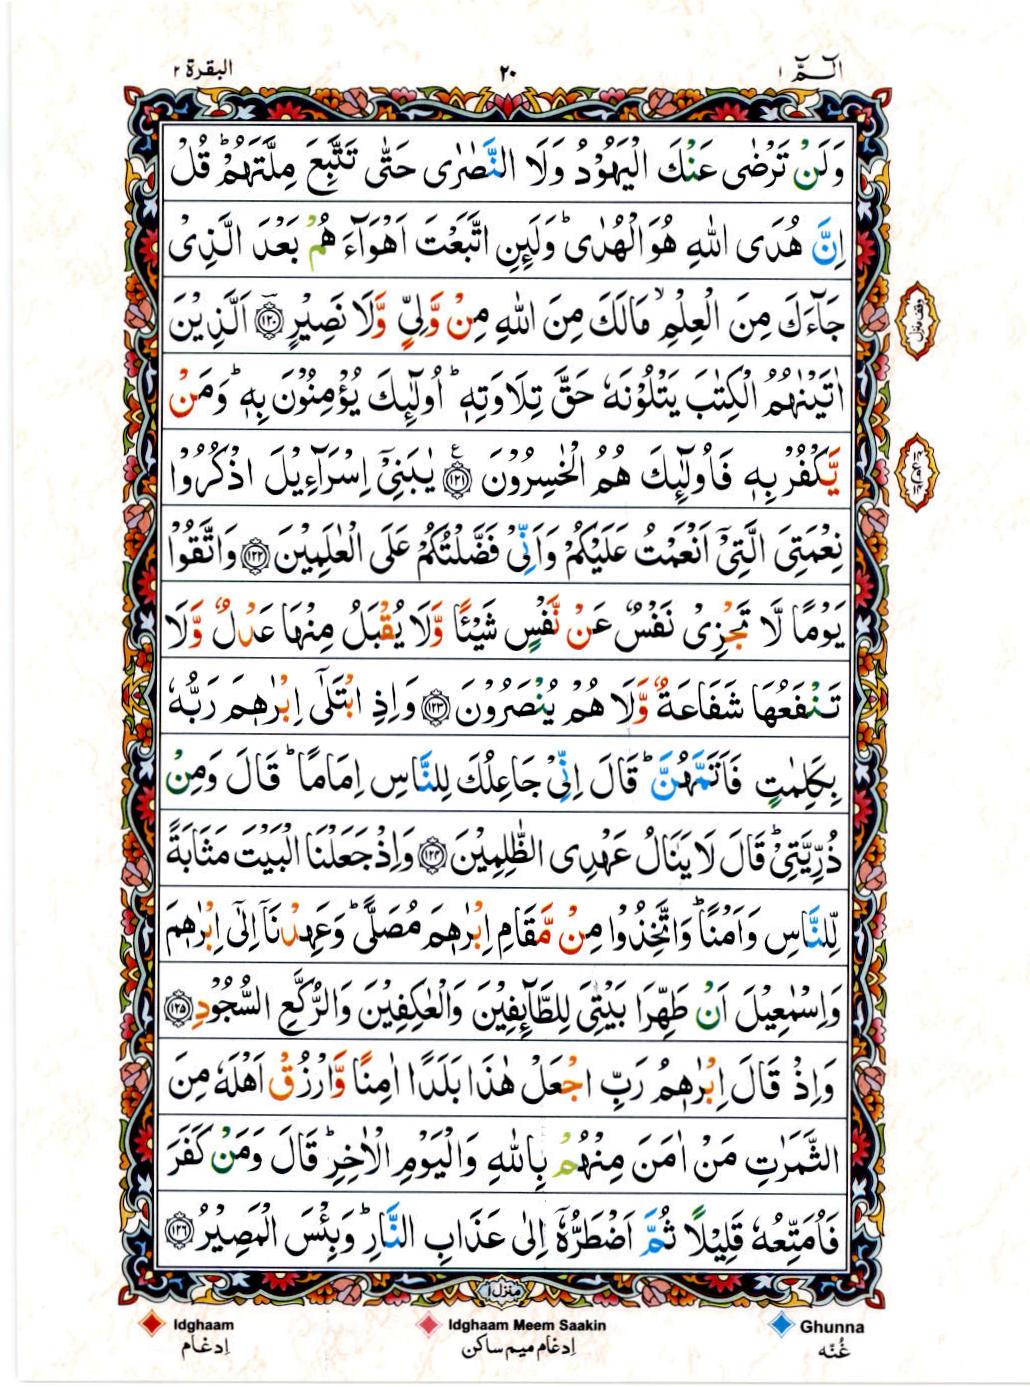 الٓمّٓ ١
٢٠
البقرة ٢
وَلَنْ تَرْضٰى عَنْكَ الْيَهُوْدُ وَلَا النَّصٰرٰى حَتّٰى تَتَّبِعَ مِلَّتَهُمْ ؕ قُلْ
اِنَّ هُدَى اللّٰهِ هُوَ الْهُدٰى ؕ وَلَئِنِ اتَّبَعْتَ اَهْوَآءَ هُمْ بَعْدَ الَّذِىْ
جَآءَكَ مِنَ الْعِلْمِ ۙ مَالَكَ مِنَ اللّٰهِ مِنْ وَّلِىٍّ وَّلَا نَصِيْرٍ ﴿١٢٠﴾ؔ اَلَّذِيْنَ
اٰتَيْنٰهُمُ الْكِتٰبَ يَتْلُوْنَهٗ حَقَّ تِلَاوَتِهٖ ؕ اُولٰٓئِكَ يُؤْمِنُوْنَ بِهٖ ؕ وَمَنْ
يَّكْفُرْ بِهٖ فَاُولٰٓئِكَ هُمُ الْخٰسِرُوْنَ ﴿١٢١﴾ ع يٰبَنِىْٓ اِسْرَآءِيْلَ اذْكُرُوْا
نِعْمَتِىَ الَّتِىْٓ اَنْعَمْتُ عَلَيْكُمْ وَاَنِّىْ فَضَّلْتُكُمْ عَلَى الْعٰلَمِيْنَ ﴿١٢٢﴾ وَاتَّقُوْا
يَوْمًا لَّا تَجْزِىْ نَفْسٌ عَنْ نَّفْسٍ شَيْئًا وَّلَا يُقْبَلُ مِنْهَا عَدْلٌ وَّلَا
تَنْفَعُهَا شَفَاعَةٌ وَّلَا هُمْ يُنْصَرُوْنَ ﴿١٢٣﴾ وَاِذِ ابْتَلٰٓى اِبْرٰهٖمَ رَبُّهٗ
بِكَلِمٰتٍ فَاَتَمَّهُنَّ ؕ قَالَ اِنِّىْ جَاعِلُكَ لِلنَّاسِ اِمَامًا ؕ قَالَ وَمِنْ
ذُرِّيَّتِىْ ؕ قَالَ لَا يَنَالُ عَهْدِى الظّٰلِمِيْنَ ﴿١٢٤﴾ وَاِذْ جَعَلْنَا الْبَيْتَ مَثَابَةً
لِّلنَّاسِ وَاَمْنًا ؕ وَاتَّخِذُوْا مِنْ مَّقَامِ اِبْرٰهٖمَ مُصَلًّى ؕ وَعَهِدْنَآ اِلٰٓى اِبْرٰهٖمَ
وَاِسْمٰعِيْلَ اَنْ طَهِّرَا بَيْتِىَ لِلطَّآئِفِيْنَ وَالْعٰكِفِيْنَ وَالرُّكَّعِ السُّجُوْدِ ﴿١٢٥﴾
وَاِذْ قَالَ اِبْرٰهٖمُ رَبِّ اجْعَلْ هٰذَا بَلَدًا اٰمِنًا وَّارْزُقْ اَهْلَهٗ مِنَ
الثَّمَرٰتِ مَنْ اٰمَنَ مِنْهُمْ بِاللّٰهِ وَالْيَوْمِ الْاٰخِرِ ؕ قَالَ وَمَنْ كَفَرَ
فَاُمَتِّعُهٗ قَلِيْلًا ثُمَّ اَضْطَرُّهٗٓ اِلٰى عَذَابِ النَّارِ ؕ وَبِئْسَ الْمَصِيْرُ ﴿١٢٦﴾
وقف منزل
منزل ١
Idghaam
Idghaam Meem Saakin
Ghunna
اِدغام
اِدغام میم ساکن
غُنّه